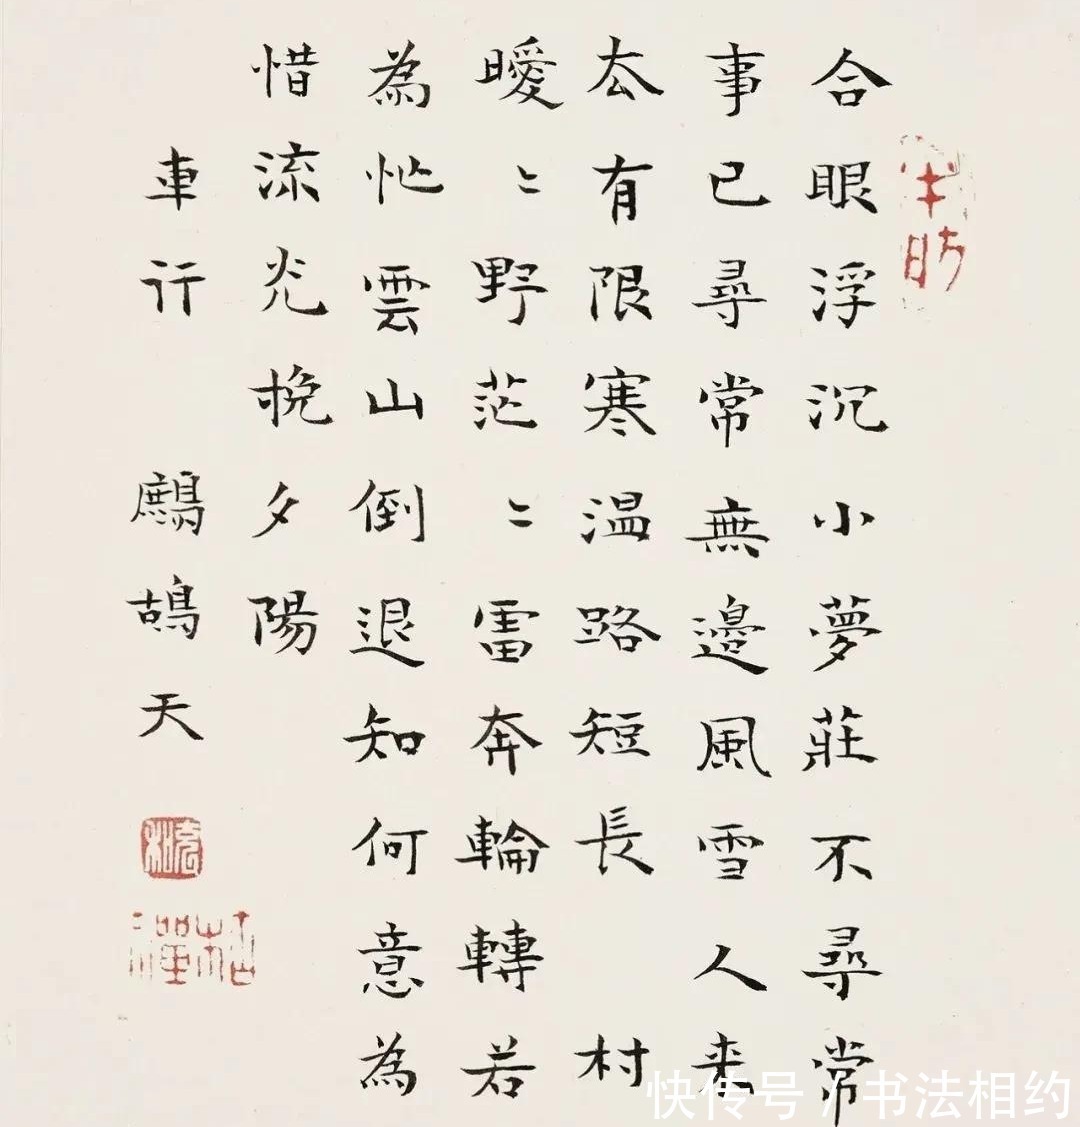 合眼浮沉小夢莊不尋常
事已尋常無邊風雪人来
去有限寒温路短長 村
曖〻野茫〻雷奔輪轉若
為忙雲山倒退知何意為
惜流光挽夕陽
車行 鷓鴣天
快传号 / 书法相约